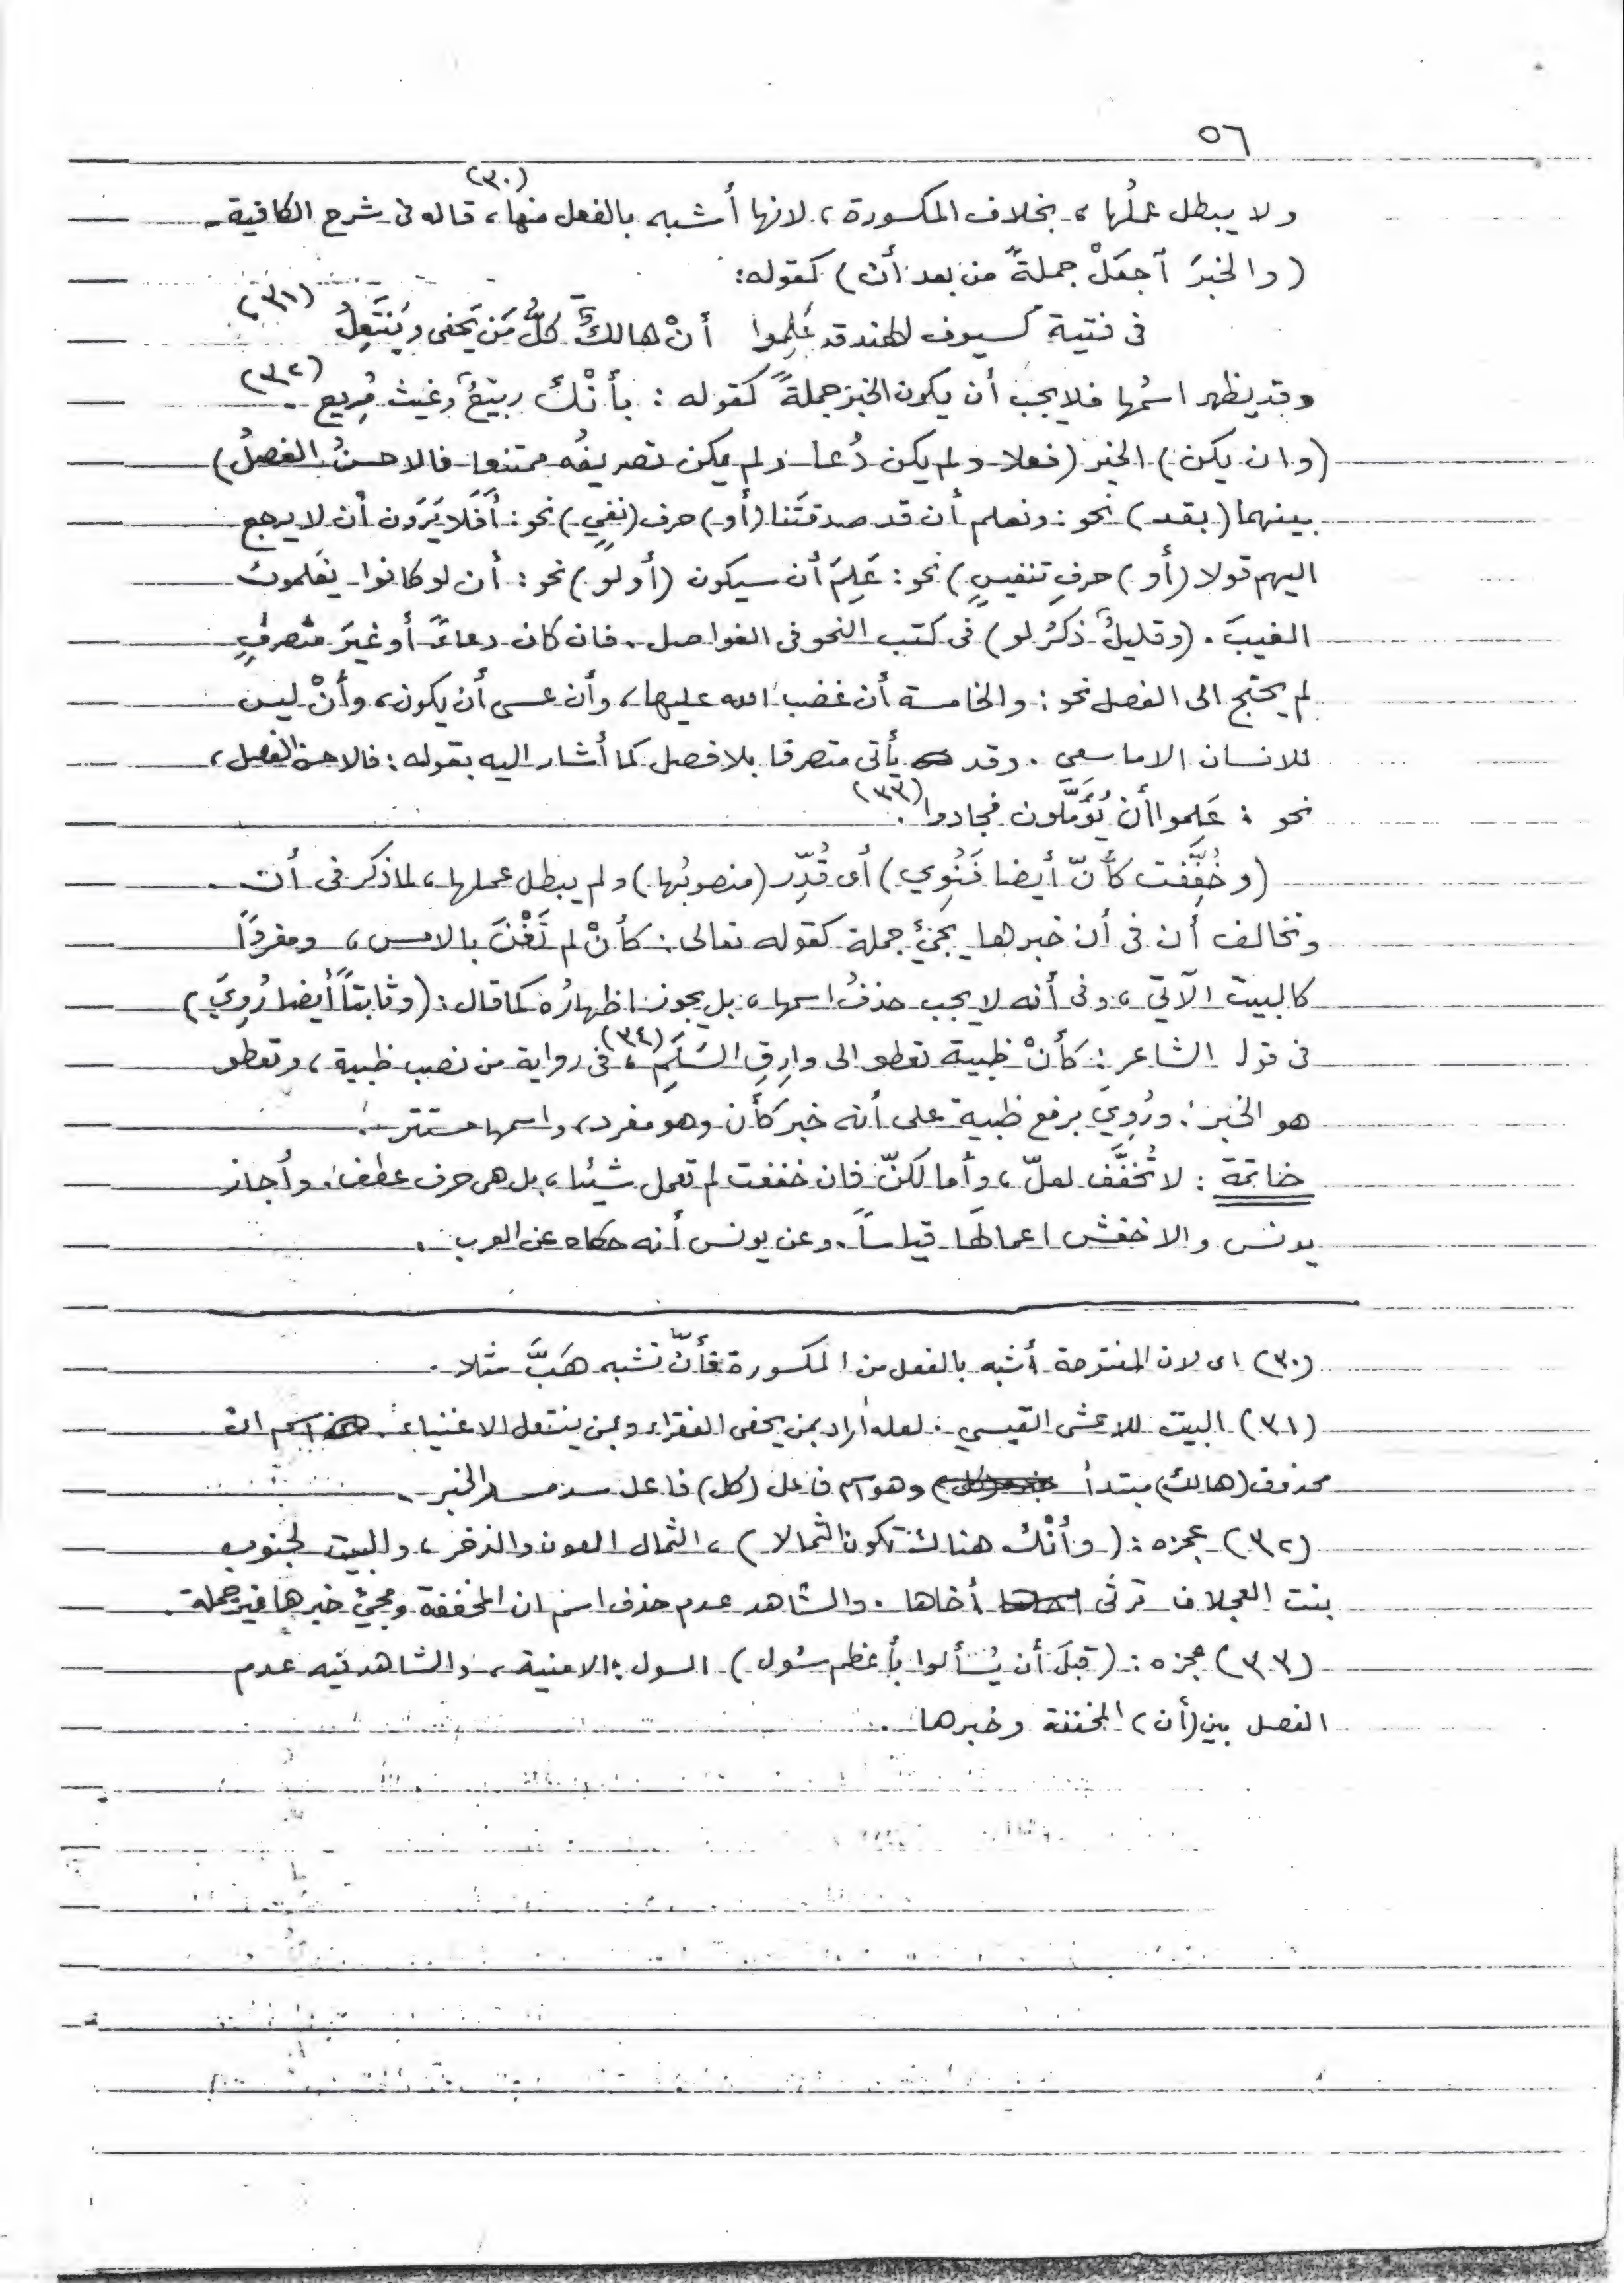 ٥٦
ولا يبطل عملُها، بخلاف المكسورة، لانها أشبه بالفعل منها، (٣٠) قاله فى شرح الكافية.
(والخبرَ آجعَلْ جملةً من بعد أن) كقوله:
فى فتية كسيوف الهند قد عَلِموا أنْ هالكٌ كلُّ مَن يَحفى ويَنتَعِلُ (٣١)
وقد يظهر اسمُها فلا يجب أن يكون الخبر جملةً كقوله : بأنْكَ ربيعٌ وغيث مُريع (٣٢)
(وان يكن) الخبر (فعلا ولم يكن دُعا ولم يكن تصريفُه ممتنعا فالاحسنُ الفصلُ)
بينهما (بقد) نحو : ونعلم أن قد صدقتَنا (أو) حرف (نفيٍ) نحو : أفَلا يَرَون أن لا يرجع
اليهم قولا (أو) حرفِ تنفيسٍ) نحو : عَلِمَ أن سيكون (أو لو) نحو : أن لو كانوا يَعلمون
الغيبَ . (وقليلٌ ذكرُ لو) فى كتب النحو فى الفواصل . فان كان دعاءً أو غيرَ متصرفٍ
لم يحتج الى الفصل نحو : والخامسة أن غضب الله عليها، وأن عسى أن يكون، وأنْ ليس
للانسان الا ما سعى . وقد يأتى متصرفا بلا فصل كما أشار اليه بقوله : فالاحسن الفصل،
نحو : عَلموا أن يُؤَمَّلون فجادوا (٣٣) .
(وخُفِّفت كأنّ أيضا فَنُوِي) أى قُدِّر (منصوبُها) ولم يبطل عملها، لما ذكر فى أن .
وتخالف أن فى أن خبرها يجئ جملة كقوله تعالى : كأنْ لم تَغْنَ بالامس، ومفردًا
كالبيت الآتي، وفى أنه لا يجب حذفُ اسمها، بل يجوز اظهارُه كما قال : (وثابتاً أيضا رُوِيَ)
فى قول الشاعر : كأنْ ظبية تعطو الى وارِقِ السَلَمِ، (٣٤) فى رواية من نصب ظبية، وتعطو
هو الخبر . ورُوِيَ برفع ظبية على أنه خبر كأن وهو مفرد، واسمها مستتر .
خاتمة : لا تُخفَّف لعلّ، وأما لكنّ فان خففت لم تعمل شيئا، بل هى حرف عطف . وأجاز
يونس والاخفش اعمالَها قياساً . وعن يونس أنه حكاه عن العرب .
(٣٠) اى لان المفتوحة أشبه بالفعل من المكسورة فأنّ تشبه هَبَّ مثلا .
(٣١) البيت للاعشى القيسي . لعله أراد بمن يحفى الفقراء وبمن ينتعل الاغنياء . اسم ان
محذوف (هالك) مبتدأ وهو اسم فاعل (كل) فاعل سد مسد الخبر .
(٣٢) عجزه : (وأنْكَ هناك تكون الثمالا)، الثمال العون والذخر، والبيت لجنوب
بنت العجلان ترثى أخاها . والشاهد عدم حذف اسم ان المخففة ومجئ خبرها غير جملة .
(٣٣) عجزه : (قبلَ أن يُسألوا بأعظم سُول) . السول : الامنية، والشاهد فيه عدم
الفصل بين (أن) المخففة وخبرها .